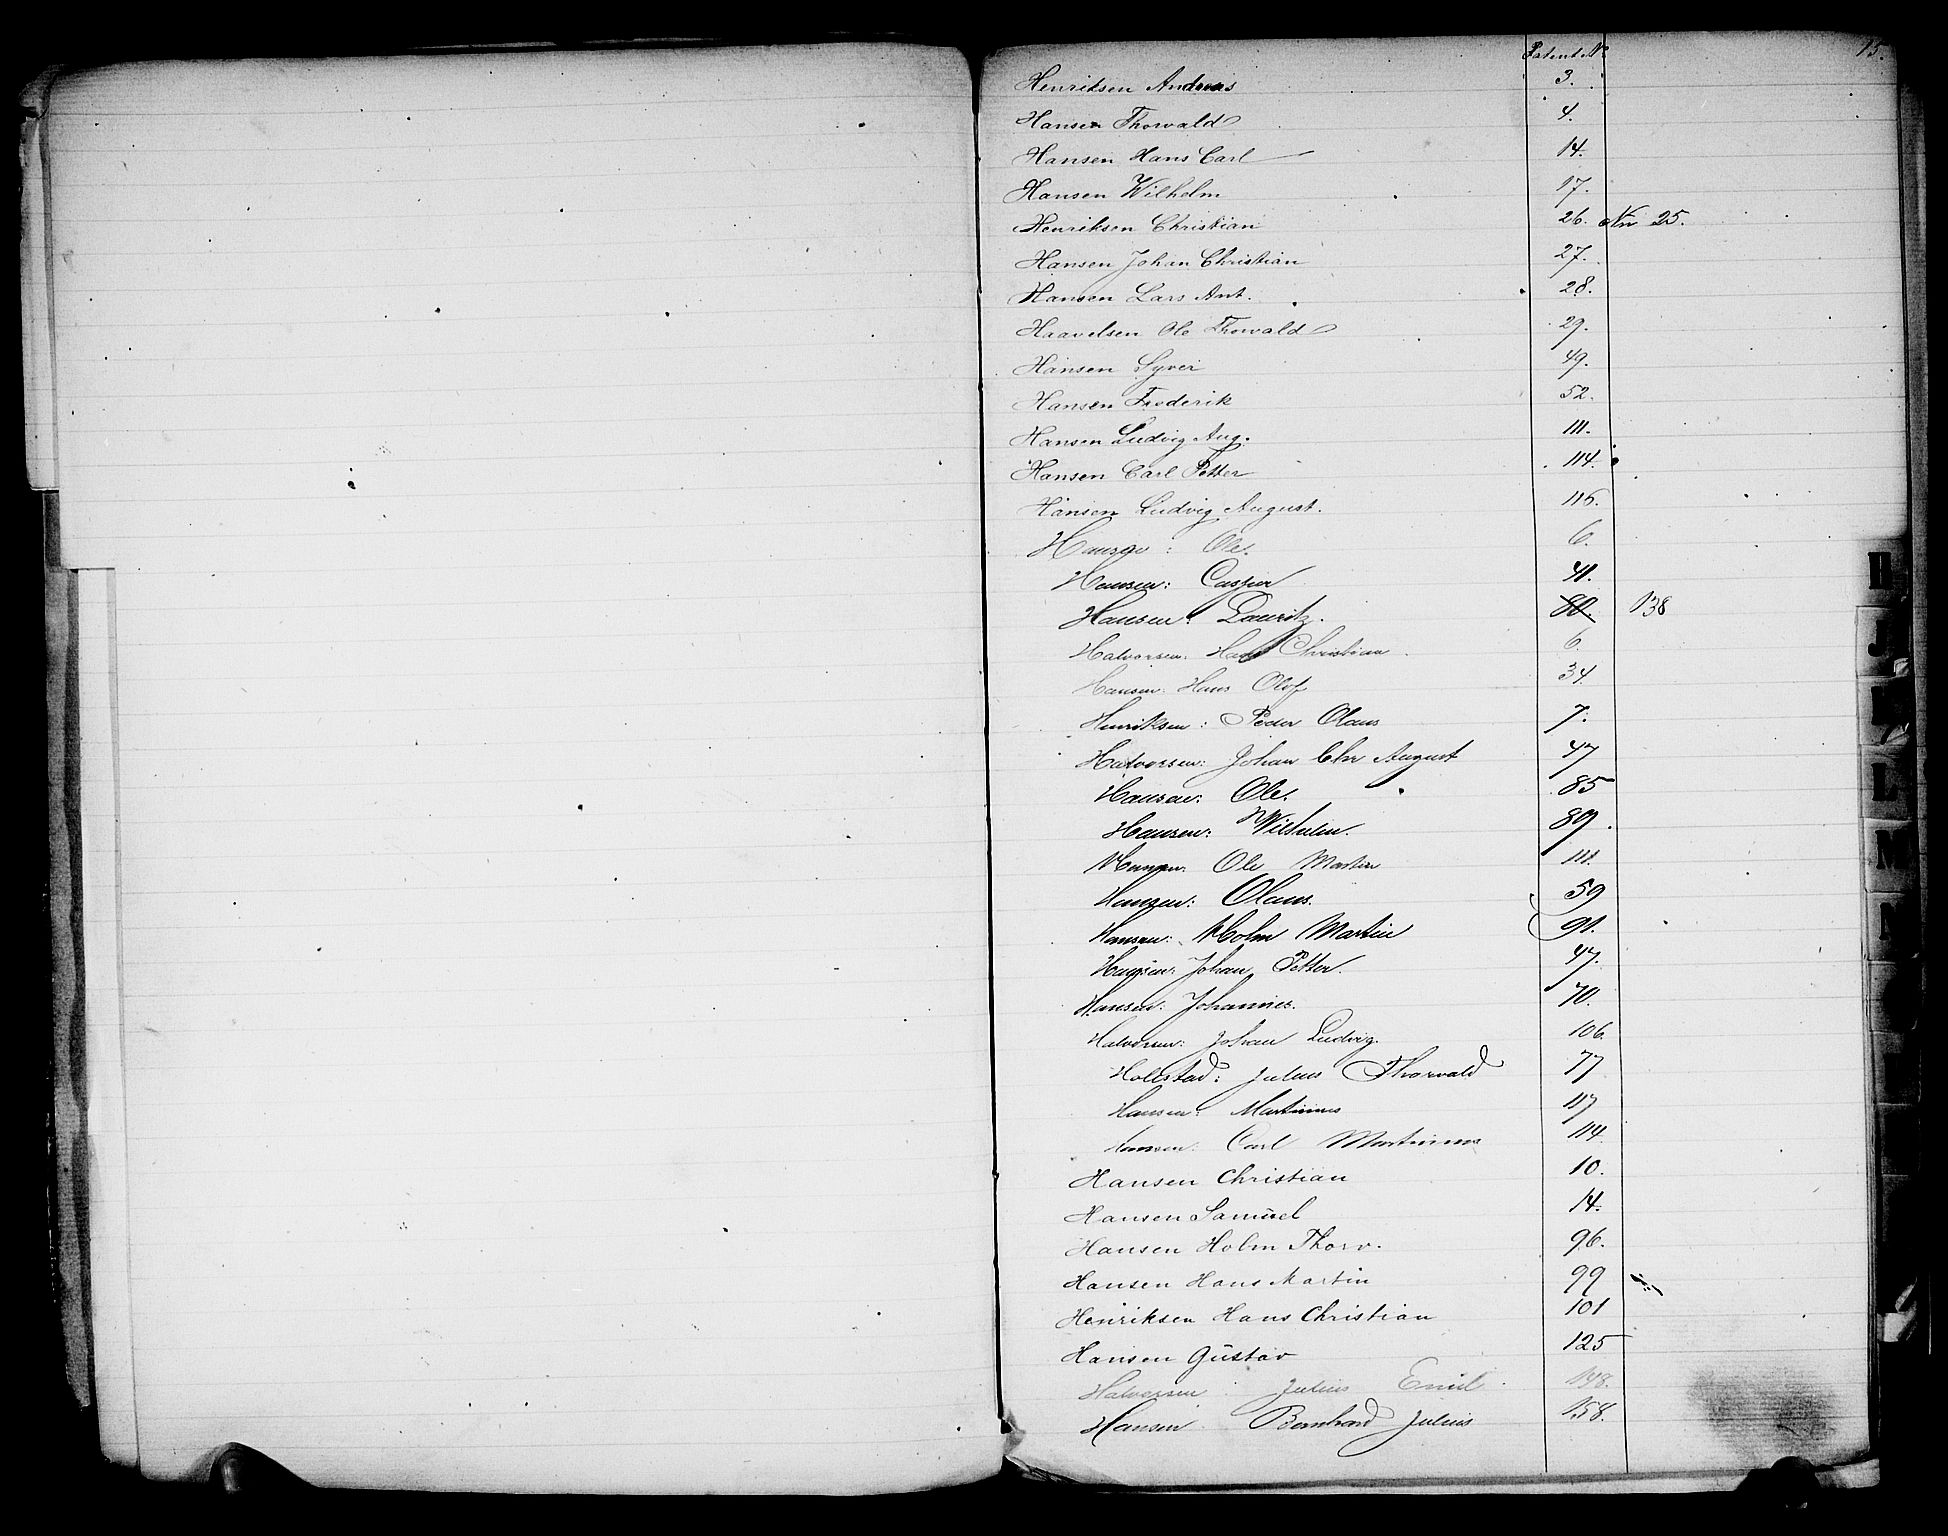 Patent No 15.
Henriksen Andreas 3.
Hansen Thorvald 4.
Hansen Hans Carl 14.
Hansen Wilhelm 17.
Henriksen Christian 26. Nu 25.
Hansen Johan Christian 27.
Hansen Lars Ant. 28.
Haavelsen Ole Thorvald 29.
Hansen Syver 49.
Hansen Frederik 52.
Hansen Ludvig Aug. 111.
Hansen Carl Petter 114.
Hansen Ludvig August. 116.
Hansen: Ole. 6.
Hansen: Casper 41.
Hansen: Lauritz. 80. 138
Halvorsen: Hans Christian. 6.
Hansen: Hans Olof 34
Henriksen: Peder Olaus 7.
Halvorsen: Johan Chr August 47
Hansen: Ole. 85
Hansen: Wilhelm. 89.
Hansen: Ole Martin 111.
Hansen: Olaus. 59
Hansen: Holm Martin 91.
Hansen: Johan Petter. 47.
Hansen: Johannes. 70.
Halvorsen: Johan Ludvig. 106.
Hollstad: Julius Thorvald 77
Hansen: Martinius 117
Hansen: Carl Martinius 114
Hansen Christian 10.
Hansen Samuel 14.
Hansen Holm Thorv. 96.
Hansen Hans Martin 99
Henriksen Hans Christian 101
Hansen Gustav 125
Halvorsen: Julius Emil. 148.
Hansen Bernhard Julius 158.
H
J
L
M
N